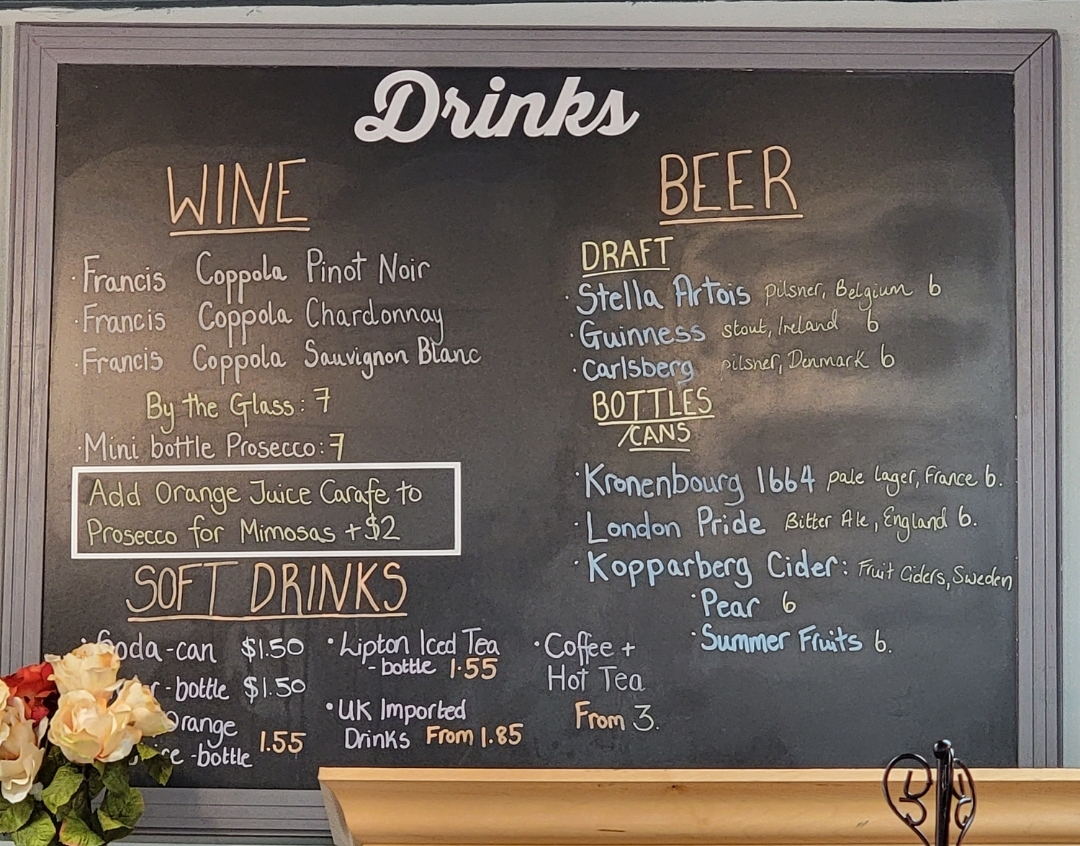 Drinks
WINE
· Francis Coppola Pinot Noir
· Francis Coppola Chardonnay
· Francis Coppola Sauvignon Blanc
By the Glass: 7
· Mini bottle Prosecco: 7
Add Orange Juice Carafe to
Prosecco for Mimosas +$2
SOFT DRINKS
· Soda-can $1.50
-bottle $1.50
Orange
-bottle 1.55
· Lipton Iced Tea
- bottle 1.55
· UK Imported
Drinks From 1.85
· Coffee +
Hot Tea
From 3.
BEER
DRAFT
· Stella Artois pilsner, Belgium 6
· Guinness stout, Ireland 6
· Carlsberg pilsner, Denmark 6
BOTTLES
/CANS
· Kronenbourg 1664 pale lager, France 6.
· London Pride Bitter Ale, England 6.
· Kopparberg Cider: Fruit Ciders, Sweden
· Pear 6
· Summer Fruits 6.